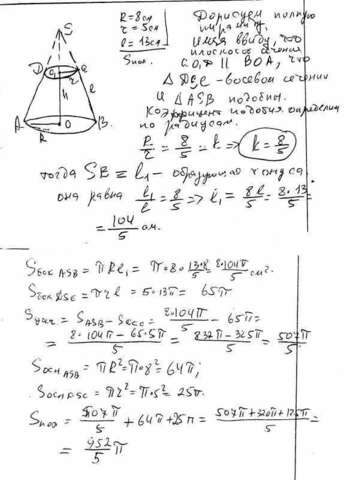 R = 8см
r = 5см
l = 13см
Sпол.
S
D
C
r
h
l
A
R
O
B
Дорисуем полную
Имея ввиду, что
плоскость сечения
COD || BOA, что
△DSC - в осевом сечении
и △ASB подобны.
Коэффициент подобия определим
по радиусам.
R/r = 8/5 = k => k = 8/5
тогда SB = l₁ - образующая конуса
она равна l₁/l = 8/5 => l₁ = 8l/5 = 8·13/5 =
= 104/5 см.
Sбок ASB = πRl₁ = π·8·13·8/5 = 8·104π/5 см².
Sбок DSC = πrl = 5·13π = 65π
Sусеч = SASB - SDSC = 8·104π/5 - 65π =
= 8·104π - 65·5π/5 = 832π - 325π/5 = 507π/5
Sосн ASB = πR² = π·8² = 64π;
Sосн DSC = πr² = π·5² = 25π.
Sпол = 507π/5 + 64π + 25π = 507π + 320π + 125π/5 =
= 952/5 π